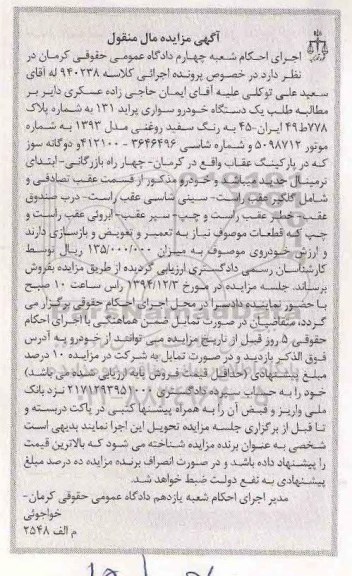 آگهی مزایده مال منقول
اجرای احکام شعبه چهارم دادگاه عمومی حقوقی کرمان در
نظر دارد در خصوص پرونده اجرائی کلاسه ۹۴۰۲۳۸ له آقای
سعید علی توکلی علیه آقای ایمان حاجی زاده عسکری دایر بر
مطالبه طلب یک دستگاه خودرو سواری پراید ۱۳۱ به شماره پلاک
۷۷۸ط۴۹ ایران-۴۵ به رنگ سفید روغنی مدل ۱۳۹۳ به شماره
موتور ۵۰۹۸۷۱۲ و شماره شاسی ۳۶۴۶۴۹۶ - ۴۱۲۱۰۰و دوگانه سوز
که در پارکینگ عقاب واقع در کرمان- چهار راه بازرگانی- ابتدای
ترمینال جدید میباشد و خودرو مذکور از قسمت عقب تصادفی و
شامل گلگیر عقب راست- سینی شاسی عقب راست- درب صندوق
عقب- خطر عقب راست و چپ- سپر عقب- ابروئی عقب راست و
چپ که قطعات موصوف نیاز به تعمیر و تعویض و بازسازی دارند
و ارزش خودروی موصوف به میزان ۱۳۵/۰۰۰/۰۰۰ ریال توسط
کارشناسان رسمی دادگستری ارزیابی گردیده از طریق مزایده بفروش
برساند. جلسه مزایده در مورخ ۱۳۹۴/۱۲/۳ راس ساعت ۱۰ صبح
با حضور نماینده دادسرا در محل اجرای احکام حقوقی برگزار می
گردد، متقاضیان در صورت تمایل ضمن هماهنگی با اجرای احکام
حقوقی ۵ روز قبل از تاریخ مزایده می توانند از خودرو به آدرس
فوق الذکر بازدید و در صورت تمایل به شرکت در مزایده ۱۰ درصد
مبلغ پیشنهادی (حداقل قیمت فروش پایه ارزیابی شده می باشد)
خود را به حساب سپرده دادگستری ۲۱۷۱۲۹۳۹۵۱۰۰۰ نزد بانک
ملی واریز و قبض آن را به همراه پیشنهاد کتبی در پاکت دربسته و
تا قبل از برگزاری جلسه مزایده تحویل این اجرا نمایند بدیهی است
شخصی به عنوان برنده مزایده شناخته می شود که بالاترین قیمت
را پیشنهاد داده باشد و در صورت انصراف برنده مزایده ده درصد مبلغ
پیشنهادی به نفع دولت ضبط خواهد شد.
مدیر اجرای احکام شعبه یازدهم دادگاه عمومی حقوقی کرمان-
خواجوئی
م الف ۲۵۴۸